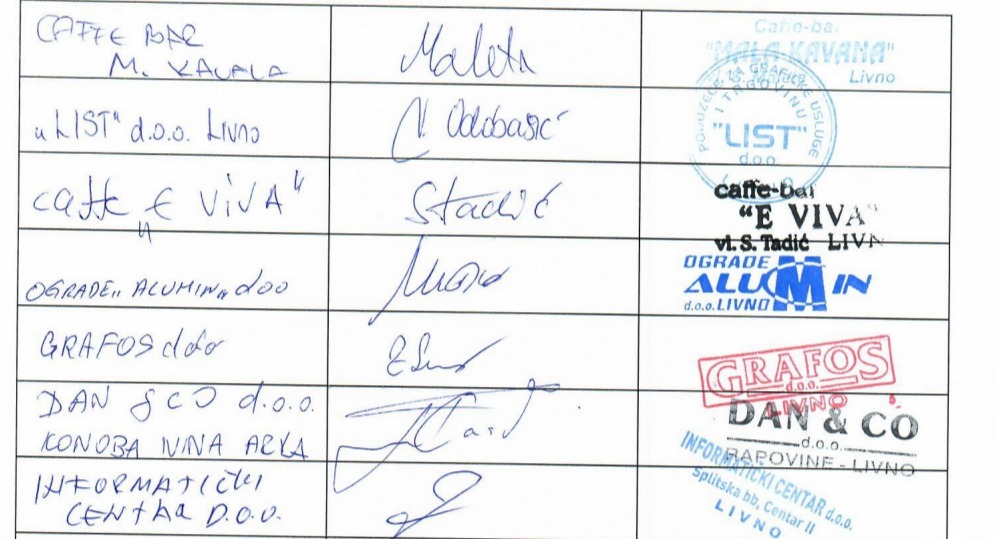 CAFFE BAR
M. KAVANA
Maleta
Caffe-bar
"MALA KAVANA"
Livno
"LIST" d.o.o. Livno
Odobašić
PODUZEĆE ZA GRAFIČKE USLUGE
I TRGOVINU
"LIST"
d.o.o.
caffe "E VIVA"
Stadić
caffe-bar
"E VIVA"
vl. S. Tadić LIVN
OGRADE "ALUMIN" doo
OGRADE
ALUMIN
d.o.o. LIVNO
GRAFOS doo
GRAFOS
d.o.o.
LIVNO
DAN & CO d.o.o.
KONOBA NINA ARKA
DAN & CO
d.o.o.
RAPOVINE - LIVNO
INFORMATIČKI
CENTAR D.O.O.
INFORMATIČKI CENTAR d.o.o.
Splitska bb, Centar II
LIVNO